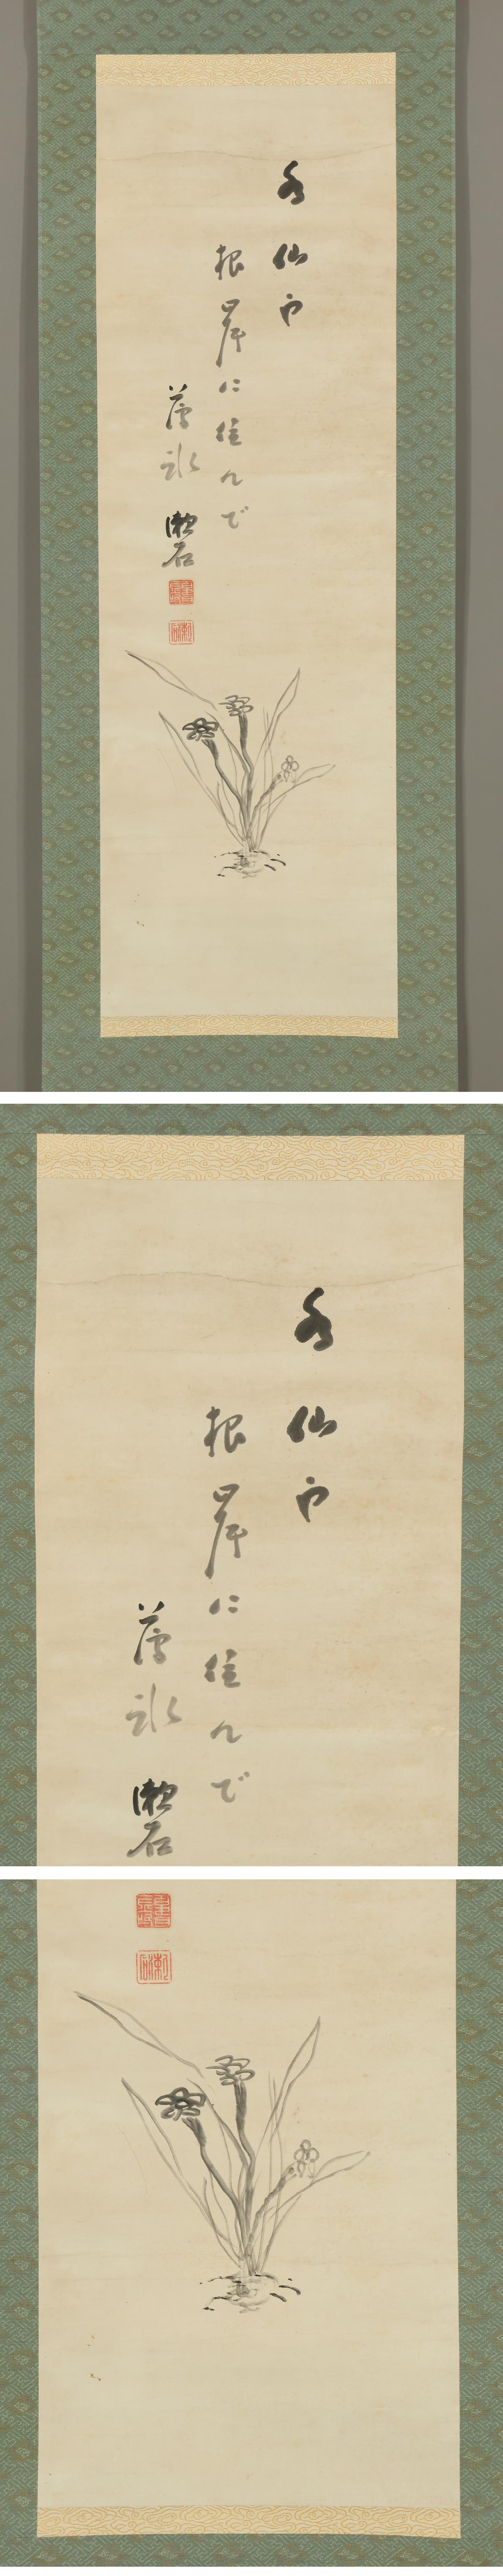 水仙や
根岸に住んで
薄氷 漱石
漱石
水仙や
根岸に住んで
薄氷 漱石
漱石